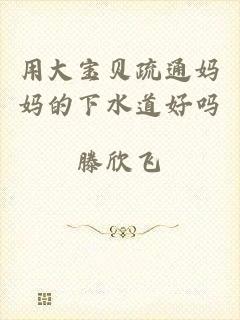 用大宝贝疏通妈
妈的下水道好吗
滕欣飞